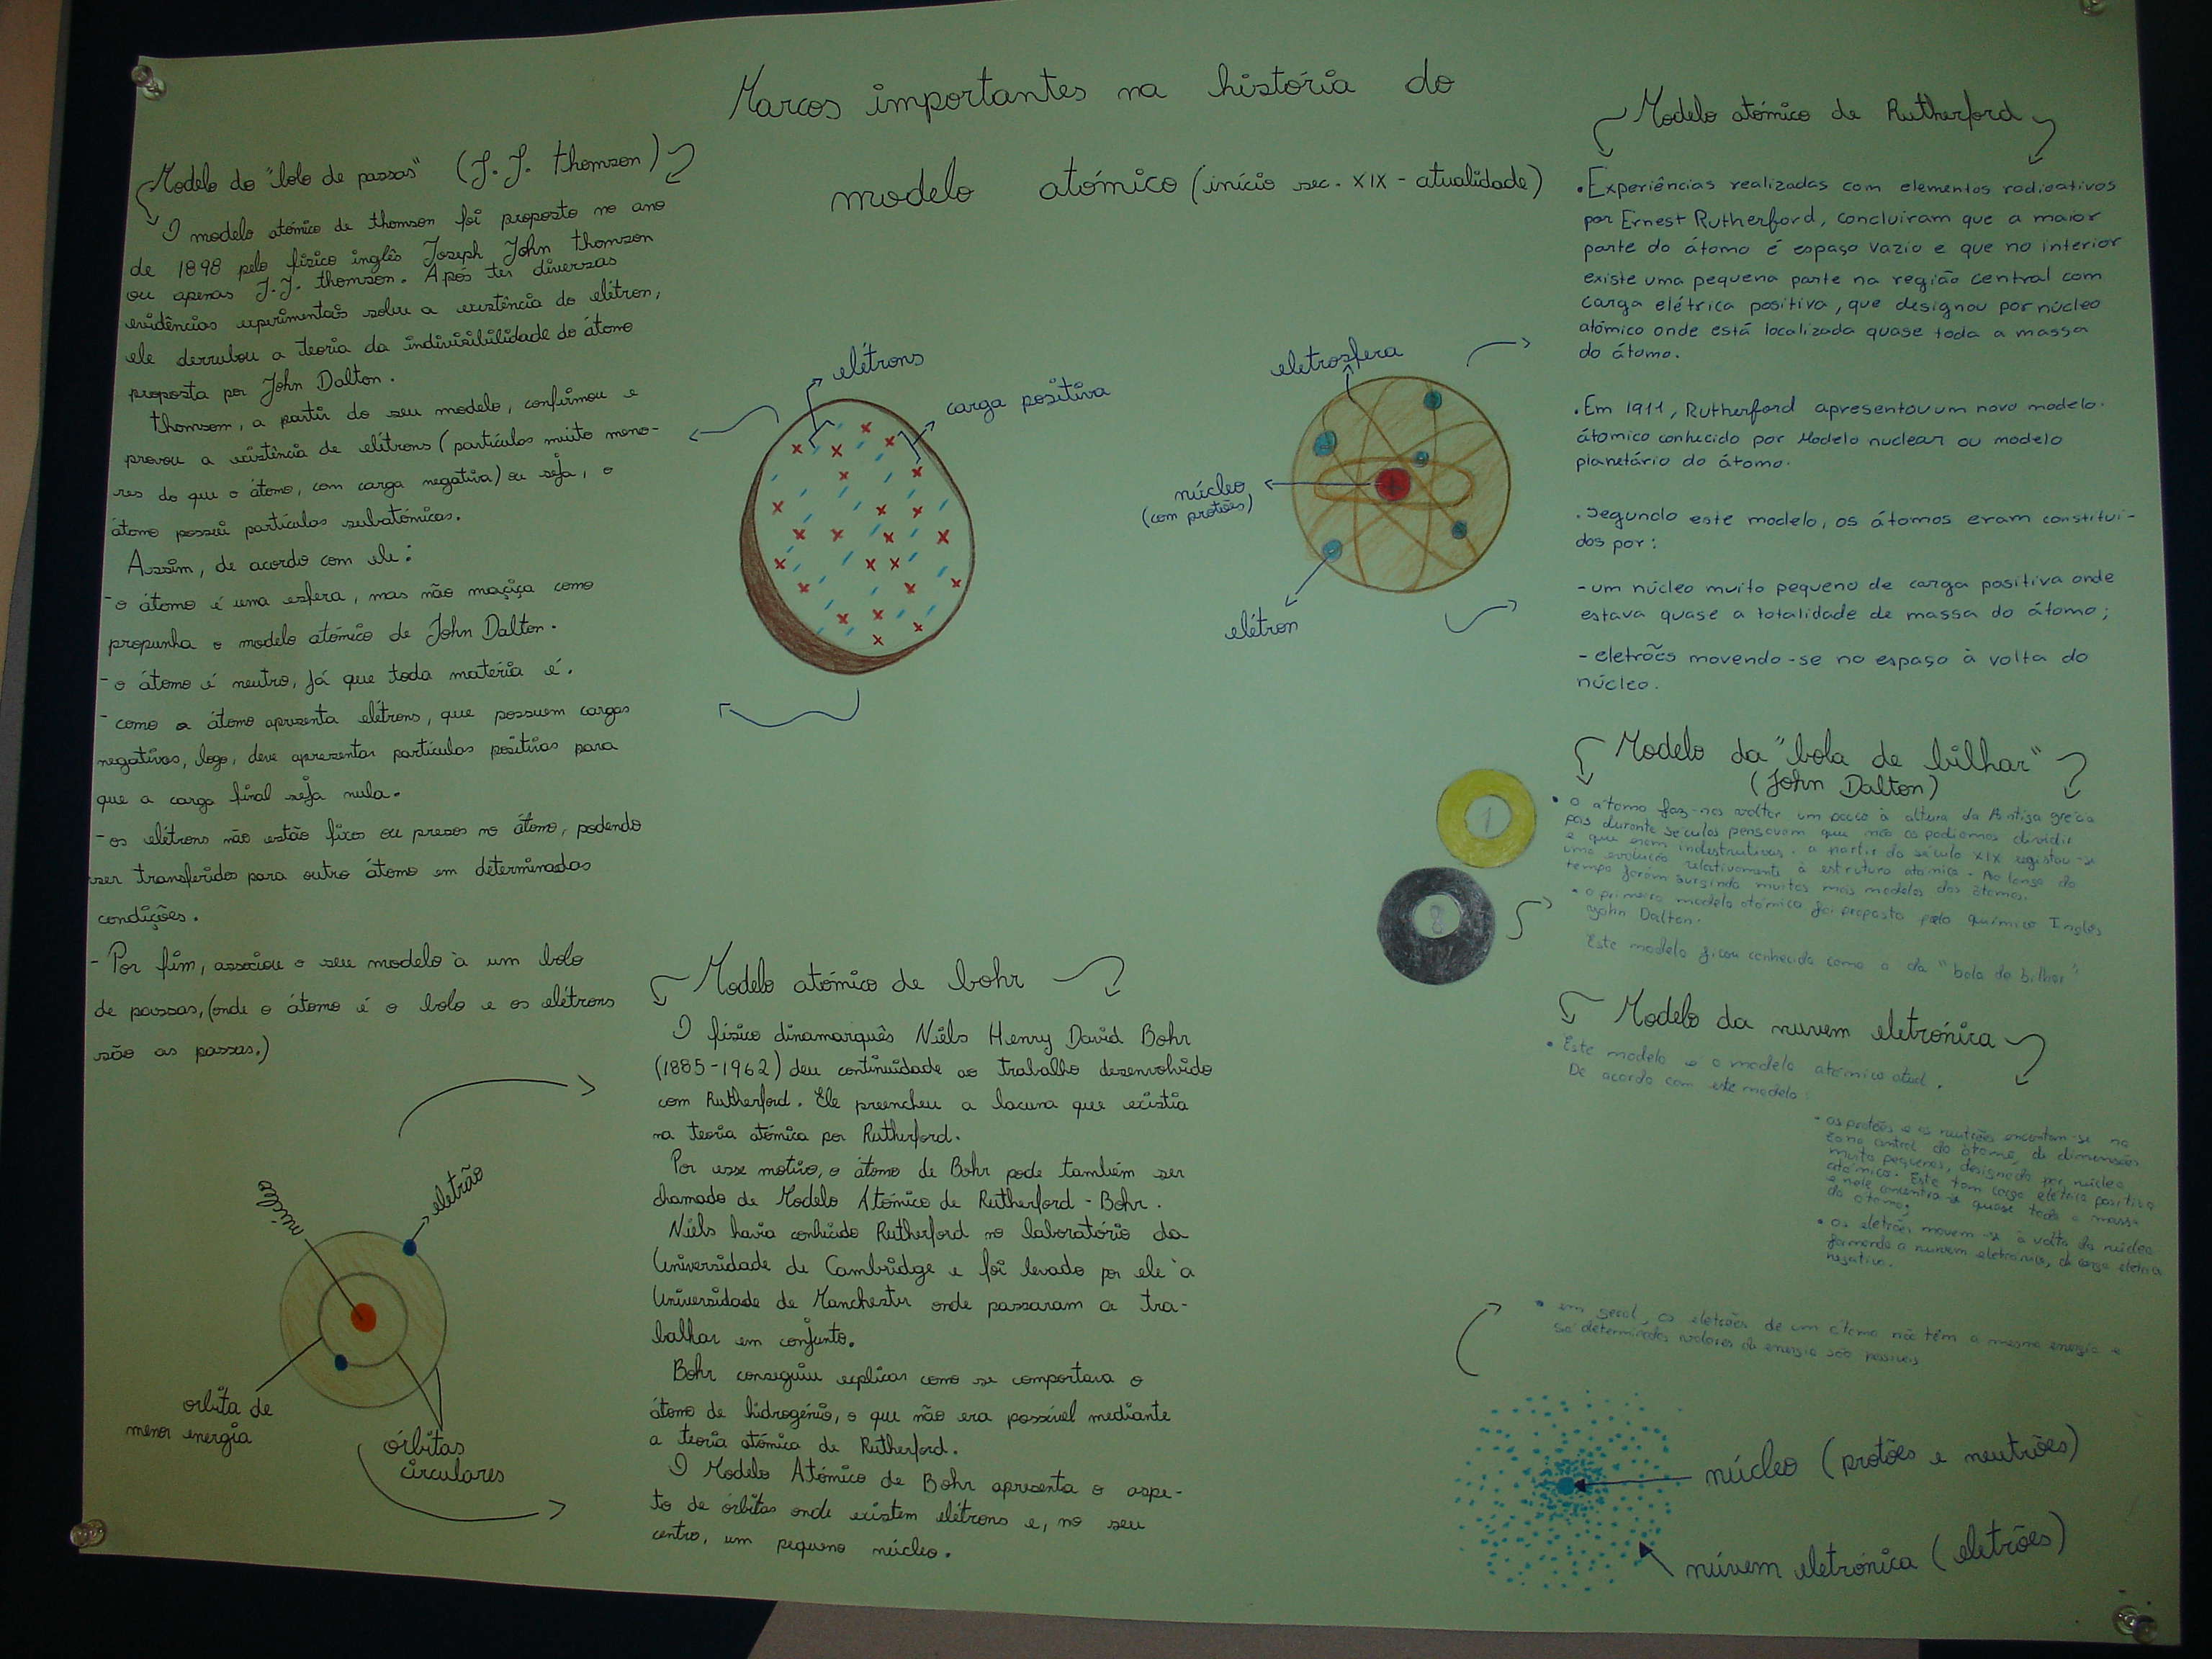 Marcos importantes na história do
modelo atómico (início sec. XIX - atualidade)
Modelo do "bolo de passas" (J. J. thomson)
O modelo atómico de thomson foi proposto no ano
de 1898 pelo físico inglês Joseph John thomson
ou apenas J.J. thomson. Após ter diversas
evidências experimentais sobre a existência do elétron,
ele derrubou a teoria da indivisibilidade do átomo
proposta por John Dalton.
thomsom, a partir do seu modelo, confirmou e
provou a existência de elétrons (partículas muito meno-
res do que o átomo, com carga negativa) ou seja, o
átomo possui partículas subatómicas.
Assim, de acordo com ele:
- o átomo é uma esfera, mas não maçiça como
propunha o modelo atómico de John Dalton.
- o átomo é neutro, já que toda matéria é.
- como o átomo apresenta elétrons, que possuem cargas
negativas, logo, deve apresentar partículas positivas para
que a carga final seja nula.
- os elétrons não estão fixos ou presos no átomo, podendo
ser transferidos para outro átomo em determinadas
condições.
- Por fim, associou o seu modelo à um bolo
de passas, (onde o átomo é o bolo e os elétrons
são as passas.)
elétrons
carga positiva
eletrosfera
núcleo
(com protões)
elétron
Modelo atómico de Rutherford
• Experiências realizadas com elementos radioativos
por Ernest Rutherford, concluíram que a maior
parte do átomo é espaço vazio e que no interior
existe uma pequena parte na região central com
carga elétrica positiva, que designou por núcleo
atómico onde está localizada quase toda a massa
do átomo.
. Em 1911, Rutherford apresentou um novo modelo
átomico conhecido por Modelo nuclear ou modelo
planetário do átomo.
. Segundo este modelo, os átomos eram constituí-
dos por:
- um núcleo muito pequeno de carga positiva onde
estava quase a totalidade de massa do átomo;
- eletrões movendo-se no espaço à volta do
núcleo.
Modelo da "bola de bilhar"
(John Dalton)
1
8
• o átomo faz-nos voltar um pouco à altura da Antiga grécia
pois durante séculos pensavam que não os podiamos dividir
e que eram indestrutivos. a partir do século XIX registou-se
uma evolução relativamente à estrutura atómica. Ao longo do
tempo foram surgindo muitos mais modelos dos átomos.
• o primeiro modelo atómico foi proposto pelo químico Inglês
John Dalton.
Este modelo ficou conhecido como o da "bola de bilhar"
Modelo da nuvem eletrónica
• Este modelo é o modelo atómico atual.
De acordo com este modelo:
• os protões e os neutrões encontam-se na
zona central do átomo, de dimensões
muito pequenas, designada por núcleo
atómico. Este tem carga elétrica positiva
e nele concentra-se quase toda a massa
do átomo;
• os eletrões movem-se à volta do núcleo
formando a nuvem eletrónica, de carga elétrica
negativa.
• em geral, os eletrões de um átomo não têm a mesma energia e
só determinados valores de energia são possíveis
núcleo (protões e neutrões)
núvem eletrónica (eletrões)
Modelo atómico de bohr
O físico dinamarquês Niels Henry David Bohr
(1885-1962) deu continuidade ao trabalho desenvolvido
com Rutherford. Ele preencheu a lacuna que existia
na teoria atómica por Rutherford.
Por esse motivo, o átomo de Bohr pode também ser
chamado de Modelo Atómico de Rutherford - Bohr.
Niels havia conhecido Rutherford no laboratório da
Universidade de Cambridge e foi levado por ele à
Universidade de Manchester onde passaram a tra-
balhar em conjunto.
Bohr conseguiu explicar como se comportava o
átomo de hidrogénio, o que não era possível mediante
a teoria atómica de Rutherford.
O Modelo Atómico de Bohr apresenta o aspe-
to de órbitas onde existem elétrons e, no seu
centro, um pequeno núcleo.
núcleo
eletrão
orbita de
menor energia
órbitas
circulares